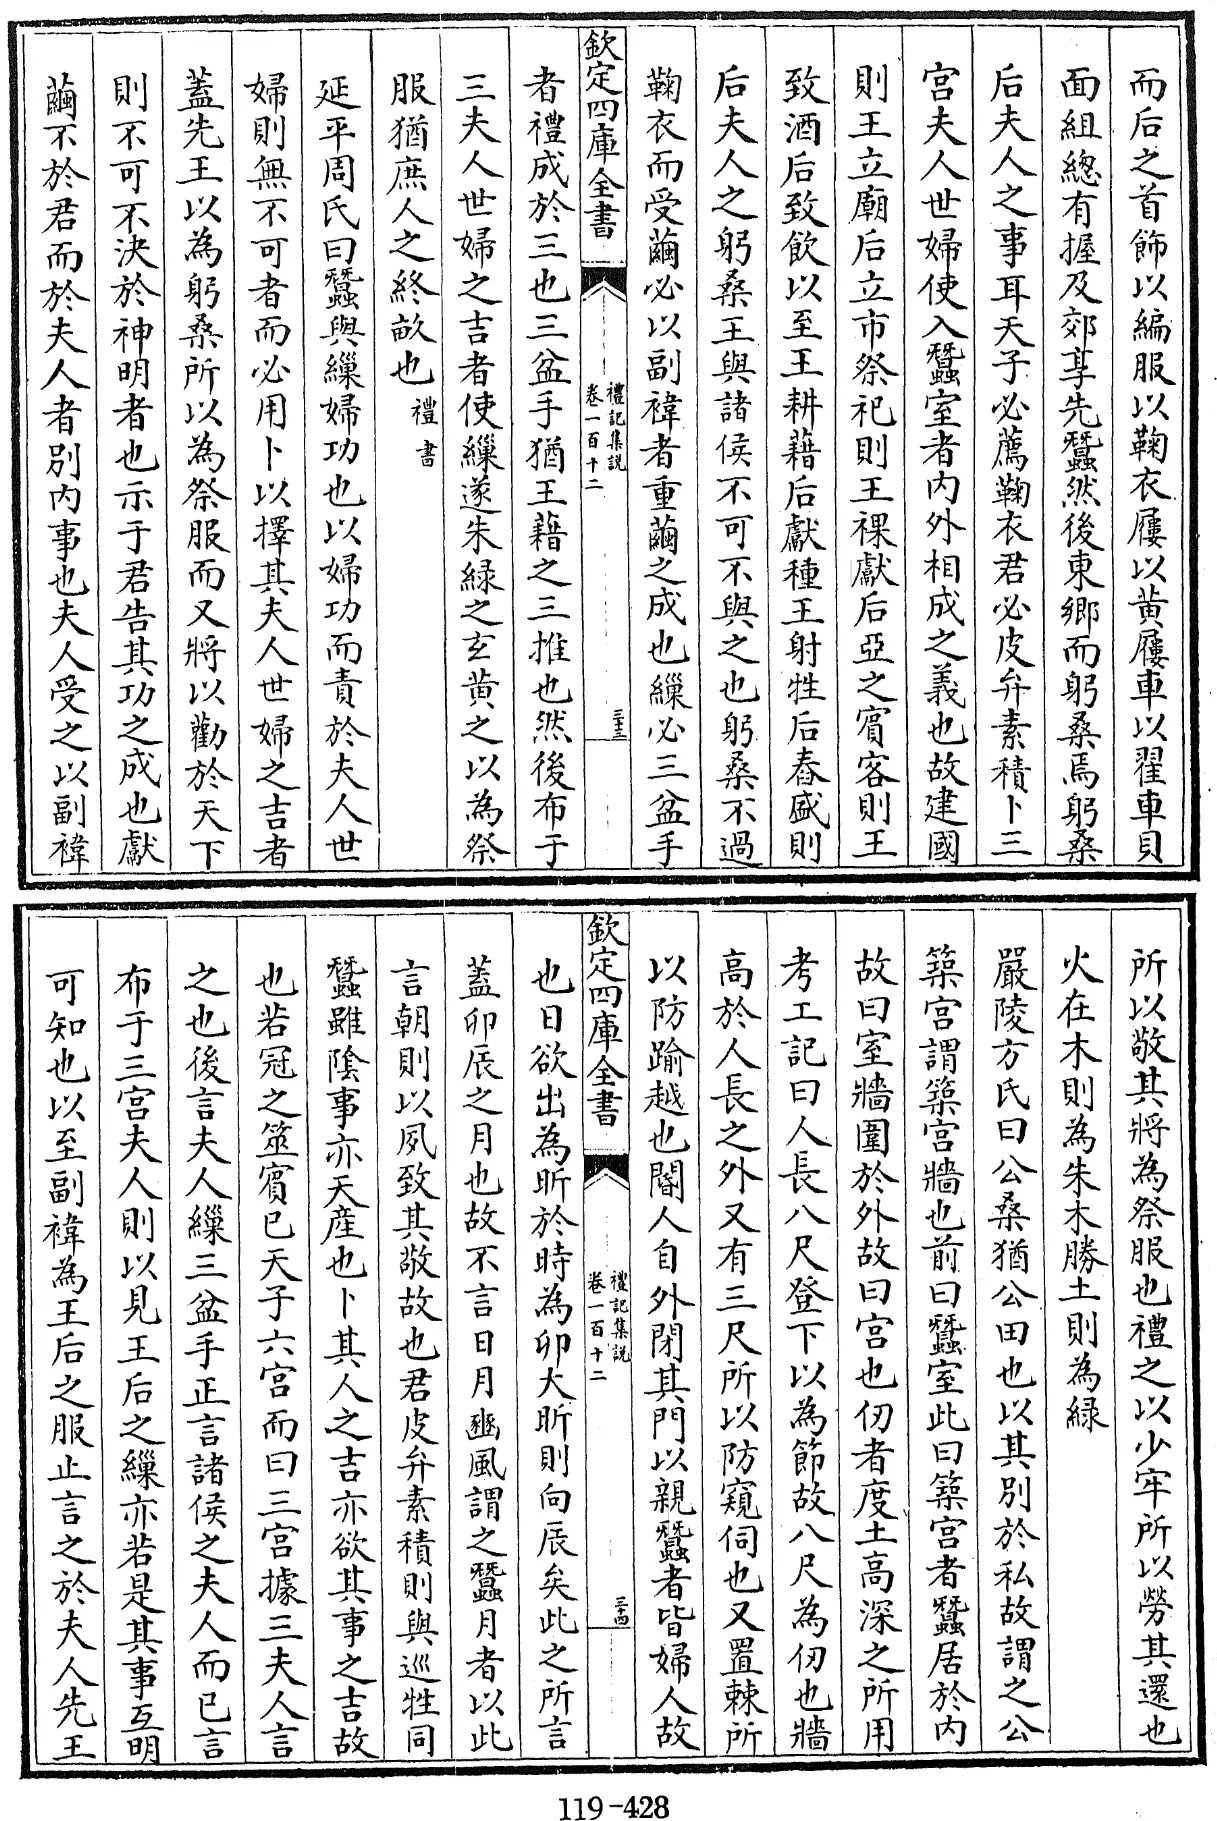 而后之首飾以編服以鞠衣屨以黄屨車以翟車貝
面組總有握及郊享先蠶然後東鄉而躬桑焉躬桑
后夫人之事耳天子必薦鞠衣君必皮弁素積卜三
宫夫人世婦使入蠶室者内外相成之義也故建國
則王立廟后立市祭祀則王祼獻后亞之賓客則王
致酒后致飲以至王耕藉后獻種王射牲后舂盛則
后夫人之躬桑王與諸侯不可不與之也躬桑不過
鞠衣而受繭必以副褘者重繭之成也繅必三盆手
欽定四庫全書
禮記集説
卷一百十二
三十三
者禮成於三也三盆手猶王藉之三推也然後布于
三夫人世婦之吉者使繅遂朱緑之玄黄之以為祭
服猶庶人之終畝也 禮書
延平周氏曰蠶與繅婦功也以婦功而責於夫人世
婦則無不可者而必用卜以擇其夫人世婦之吉者
蓋先王以為躬桑所以為祭服而又將以勸於天下
則不可不決於神明者也示于君告其功之成也獻
繭不於君而於夫人者别内事也夫人受之以副褘
所以敬其將為祭服也禮之以少牢所以勞其還也
火在木則為朱木勝土則為緑
嚴陵方氏曰公桑猶公田也以其别於私故謂之公
築宫謂築宫牆也前曰蠶室此曰築宫者蠶居於内
故曰室牆圍於外故曰宫也仞者度土高深之所用
考工記曰人長八尺登下以為節故八尺為仞也牆
高於人長之外又有三尺所以防窺伺也又置棘所
以防踰越也閽人自外閉其門以親蠶者皆婦人故
欽定四庫全書
禮記集説
卷一百十二
三十四
也日欲出為昕於時為卯大昕則向辰矣此之所言
蓋卯辰之月也故不言日月豳風謂之蠶月者以此
言朝則以夙致其敬故也君皮弁素積則與巡牲同
蠶雖隂事亦天産也卜其人之吉亦欲其事之吉故
也若冠之筮賓已天子六宫而曰三宫據三夫人言
之也後言夫人繅三盆手正言諸侯之夫人而已言
布于三宫夫人則以見王后之繅亦若是其事互明
可知也以至副褘為王后之服止言之於夫人先王
119-428